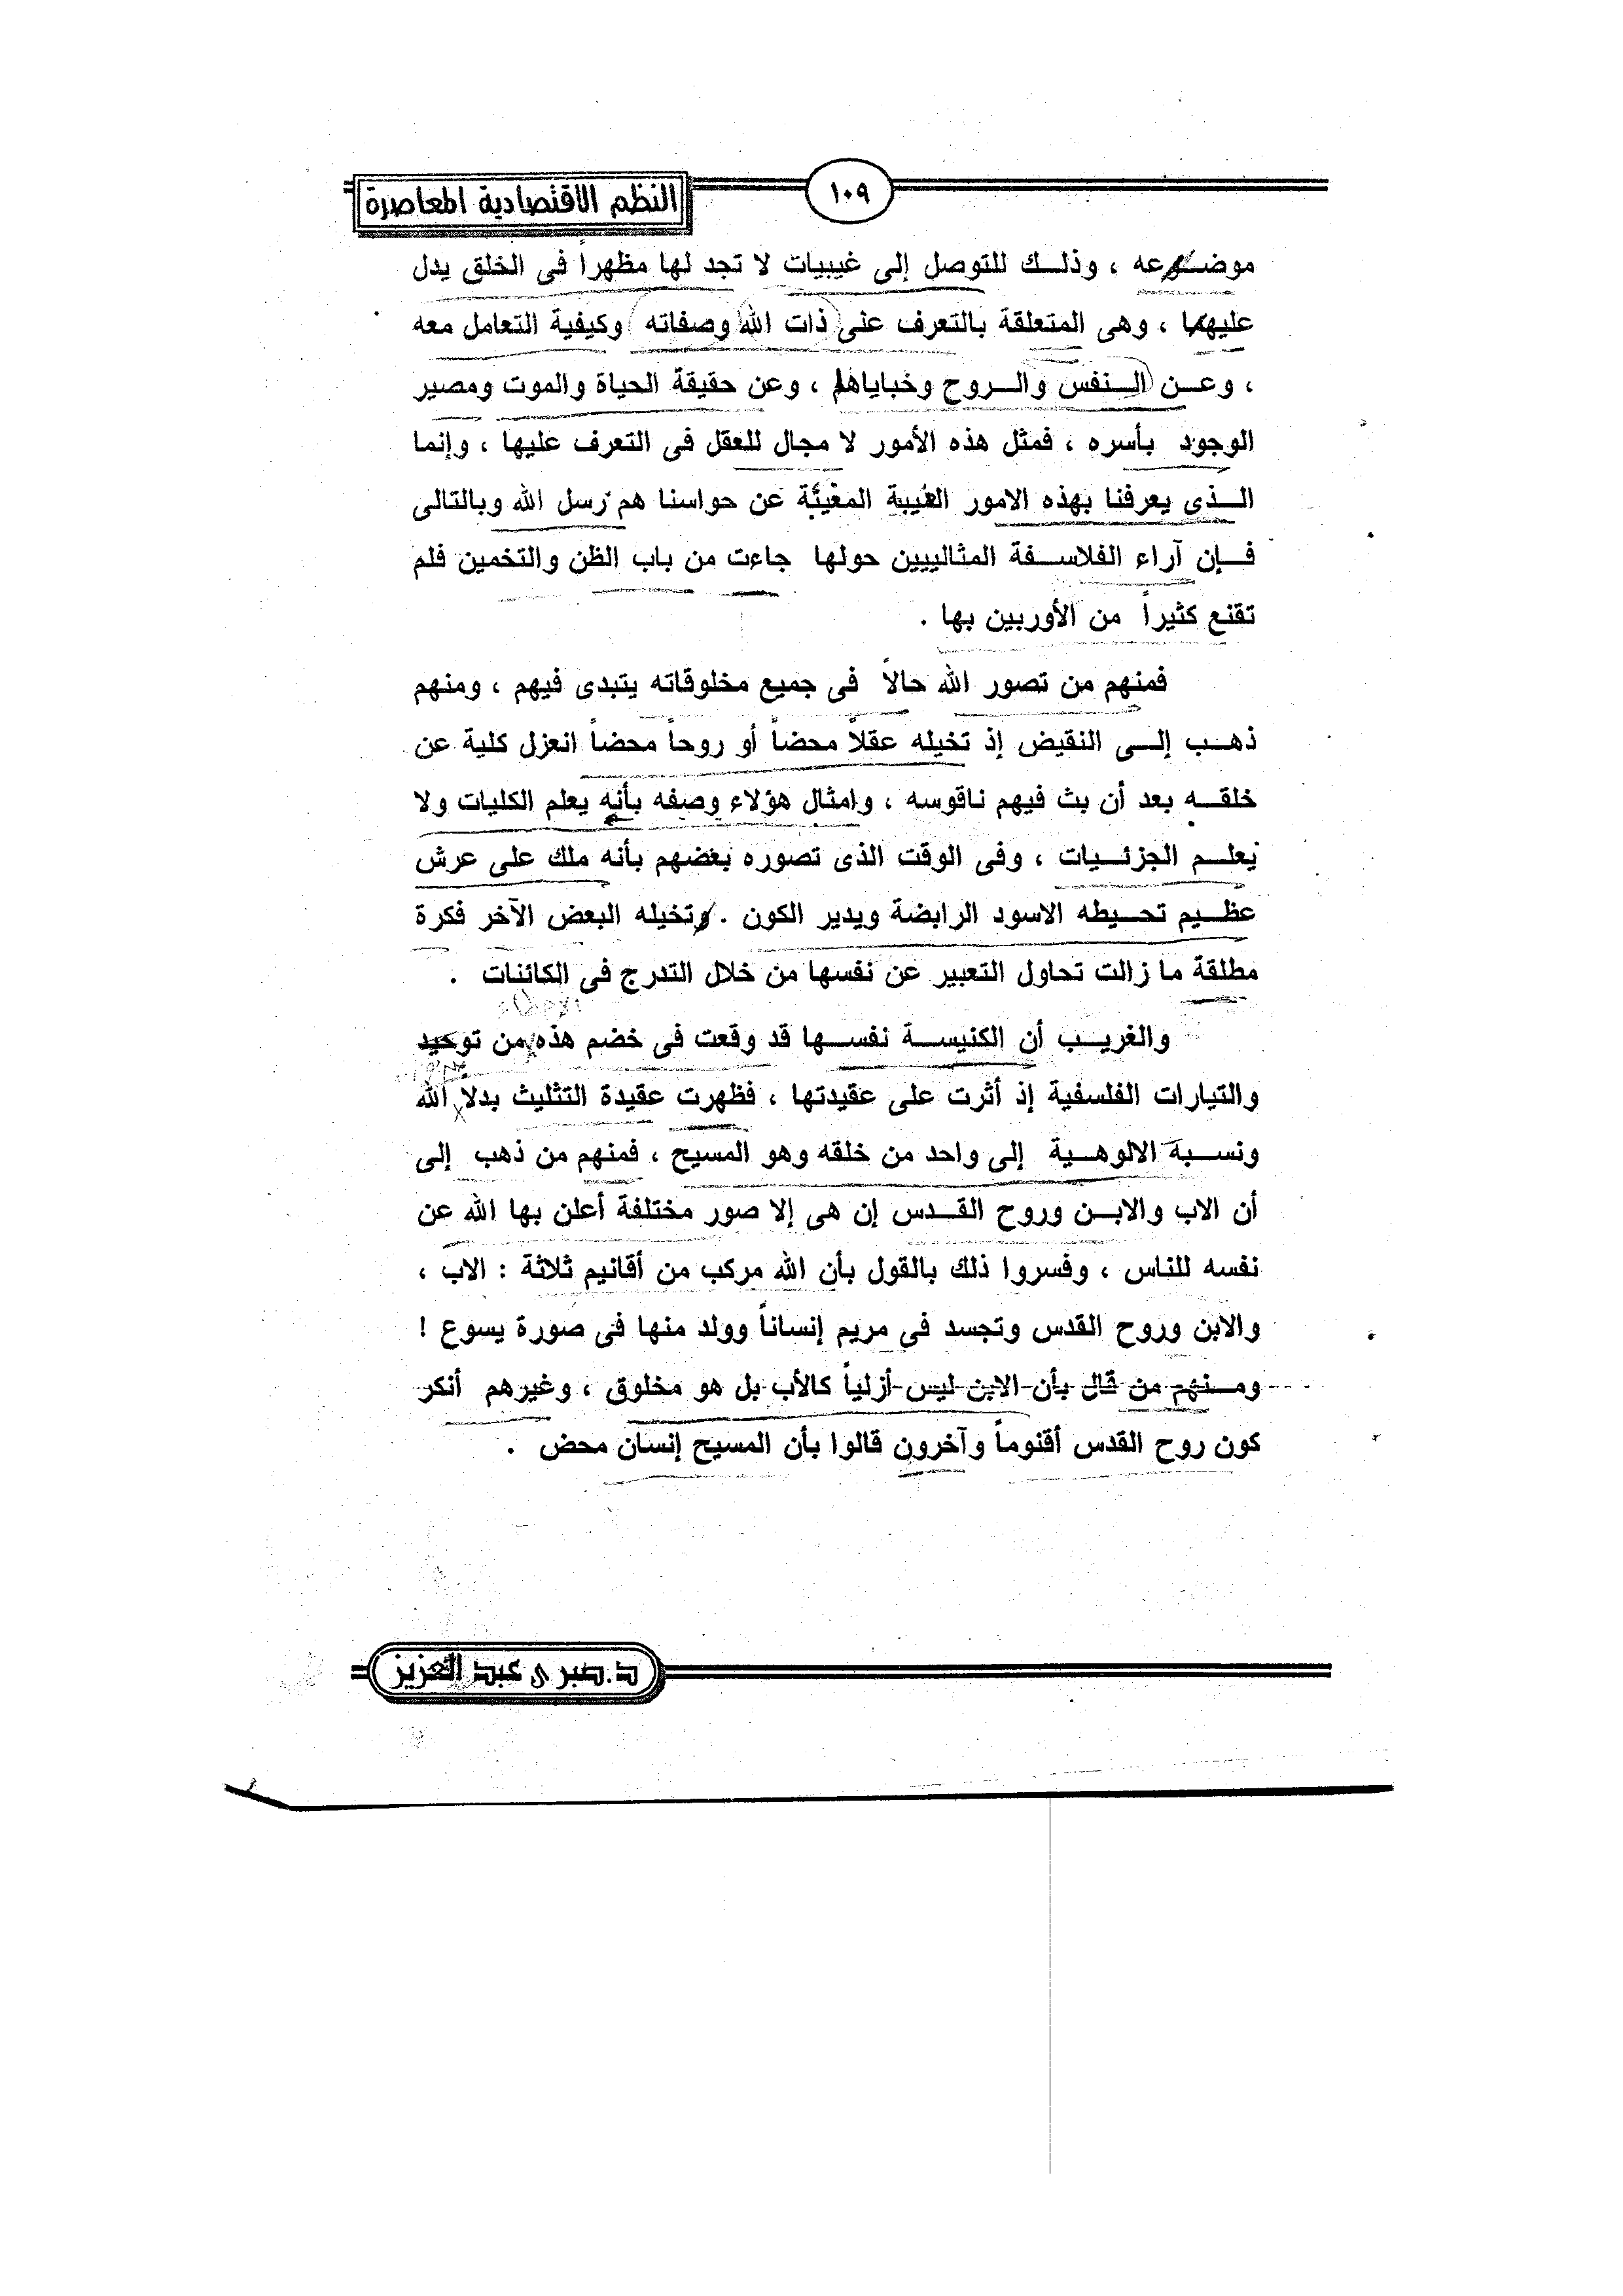 النظم الاقتصادية المعاصرة
١٠٩
موضوعه ، وذلك للتوصل إلى غيبيات لا تجد لها مظهراً فى الخلق يدل
عليها ، وهى المتعلقة بالتعرف على ذات الله وصفاته وكيفية التعامل معه
، وعن النفس والروح وخباياها ، وعن حقيقة الحياة والموت ومصير
الوجود بأسره ، فمثل هذه الأمور لا مجال للعقل فى التعرف عليها ، وإنما
الذى يعرفنا بهذه الامور الغيبة المغيبة عن حواسنا هم رسل الله وبالتالى
فإن آراء الفلاسفة المثالييين حولها جاءت من باب الظن والتخمين فلم
تقنع كثيراً من الأوربين بها .
فمنهم من تصور الله حالاً فى جميع مخلوقاته يتبدى فيهم ، ومنهم
ذهب إلى النقيض إذ تخيله عقلاً محضاً أو روحاً محضاً انعزل كلية عن
خلقه بعد أن بث فيهم ناقوسه ، وامثال هؤلاء وصفه بأنه يعلم الكليات ولا
يعلم الجزئيات ، وفى الوقت الذى تصوره بعضهم بأنه ملك على عرش
عظيم تحيطه الاسود الرابضة ويدير الكون . وتخيله البعض الآخر فكرة
مطلقة ما زالت تحاول التعبير عن نفسها من خلال التدرج فى الكائنات .
والغريب أن الكنيسة نفسها قد وقعت فى خضم هذه من توحيد
والتيارات الفلسفية إذ أثرت على عقيدتها ، فظهرت عقيدة التثليث بدلا الله
ونسبة الالوهية إلى واحد من خلقه وهو المسيح ، فمنهم من ذهب إلى
أن الاب والابن وروح القدس إن هى إلا صور مختلفة أعلن بها الله عن
نفسه للناس ، وفسروا ذلك بالقول بأن الله مركب من أقانيم ثلاثة : الاب ،
والابن وروح القدس وتجسد فى مريم إنساناً وولد منها فى صورة يسوع !
ومنهم من قال بأن الابن ليس أزلياً كالأب بل هو مخلوق ، وغيرهم أنكر
كون روح القدس أقنوماً وآخرون قالوا بأن المسيح إنسان محض .
د.صبرى عبد العزيز